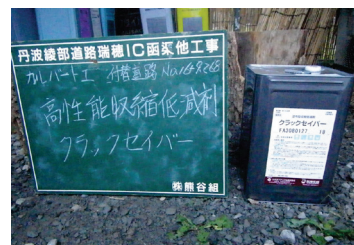 丹波綾部道路瑞穂IC函渠他工事
カルバート工 付替道路 No.16+9.268
高性能収縮低減剤
クラックセイバー
㈱熊谷組
クラックセイバー